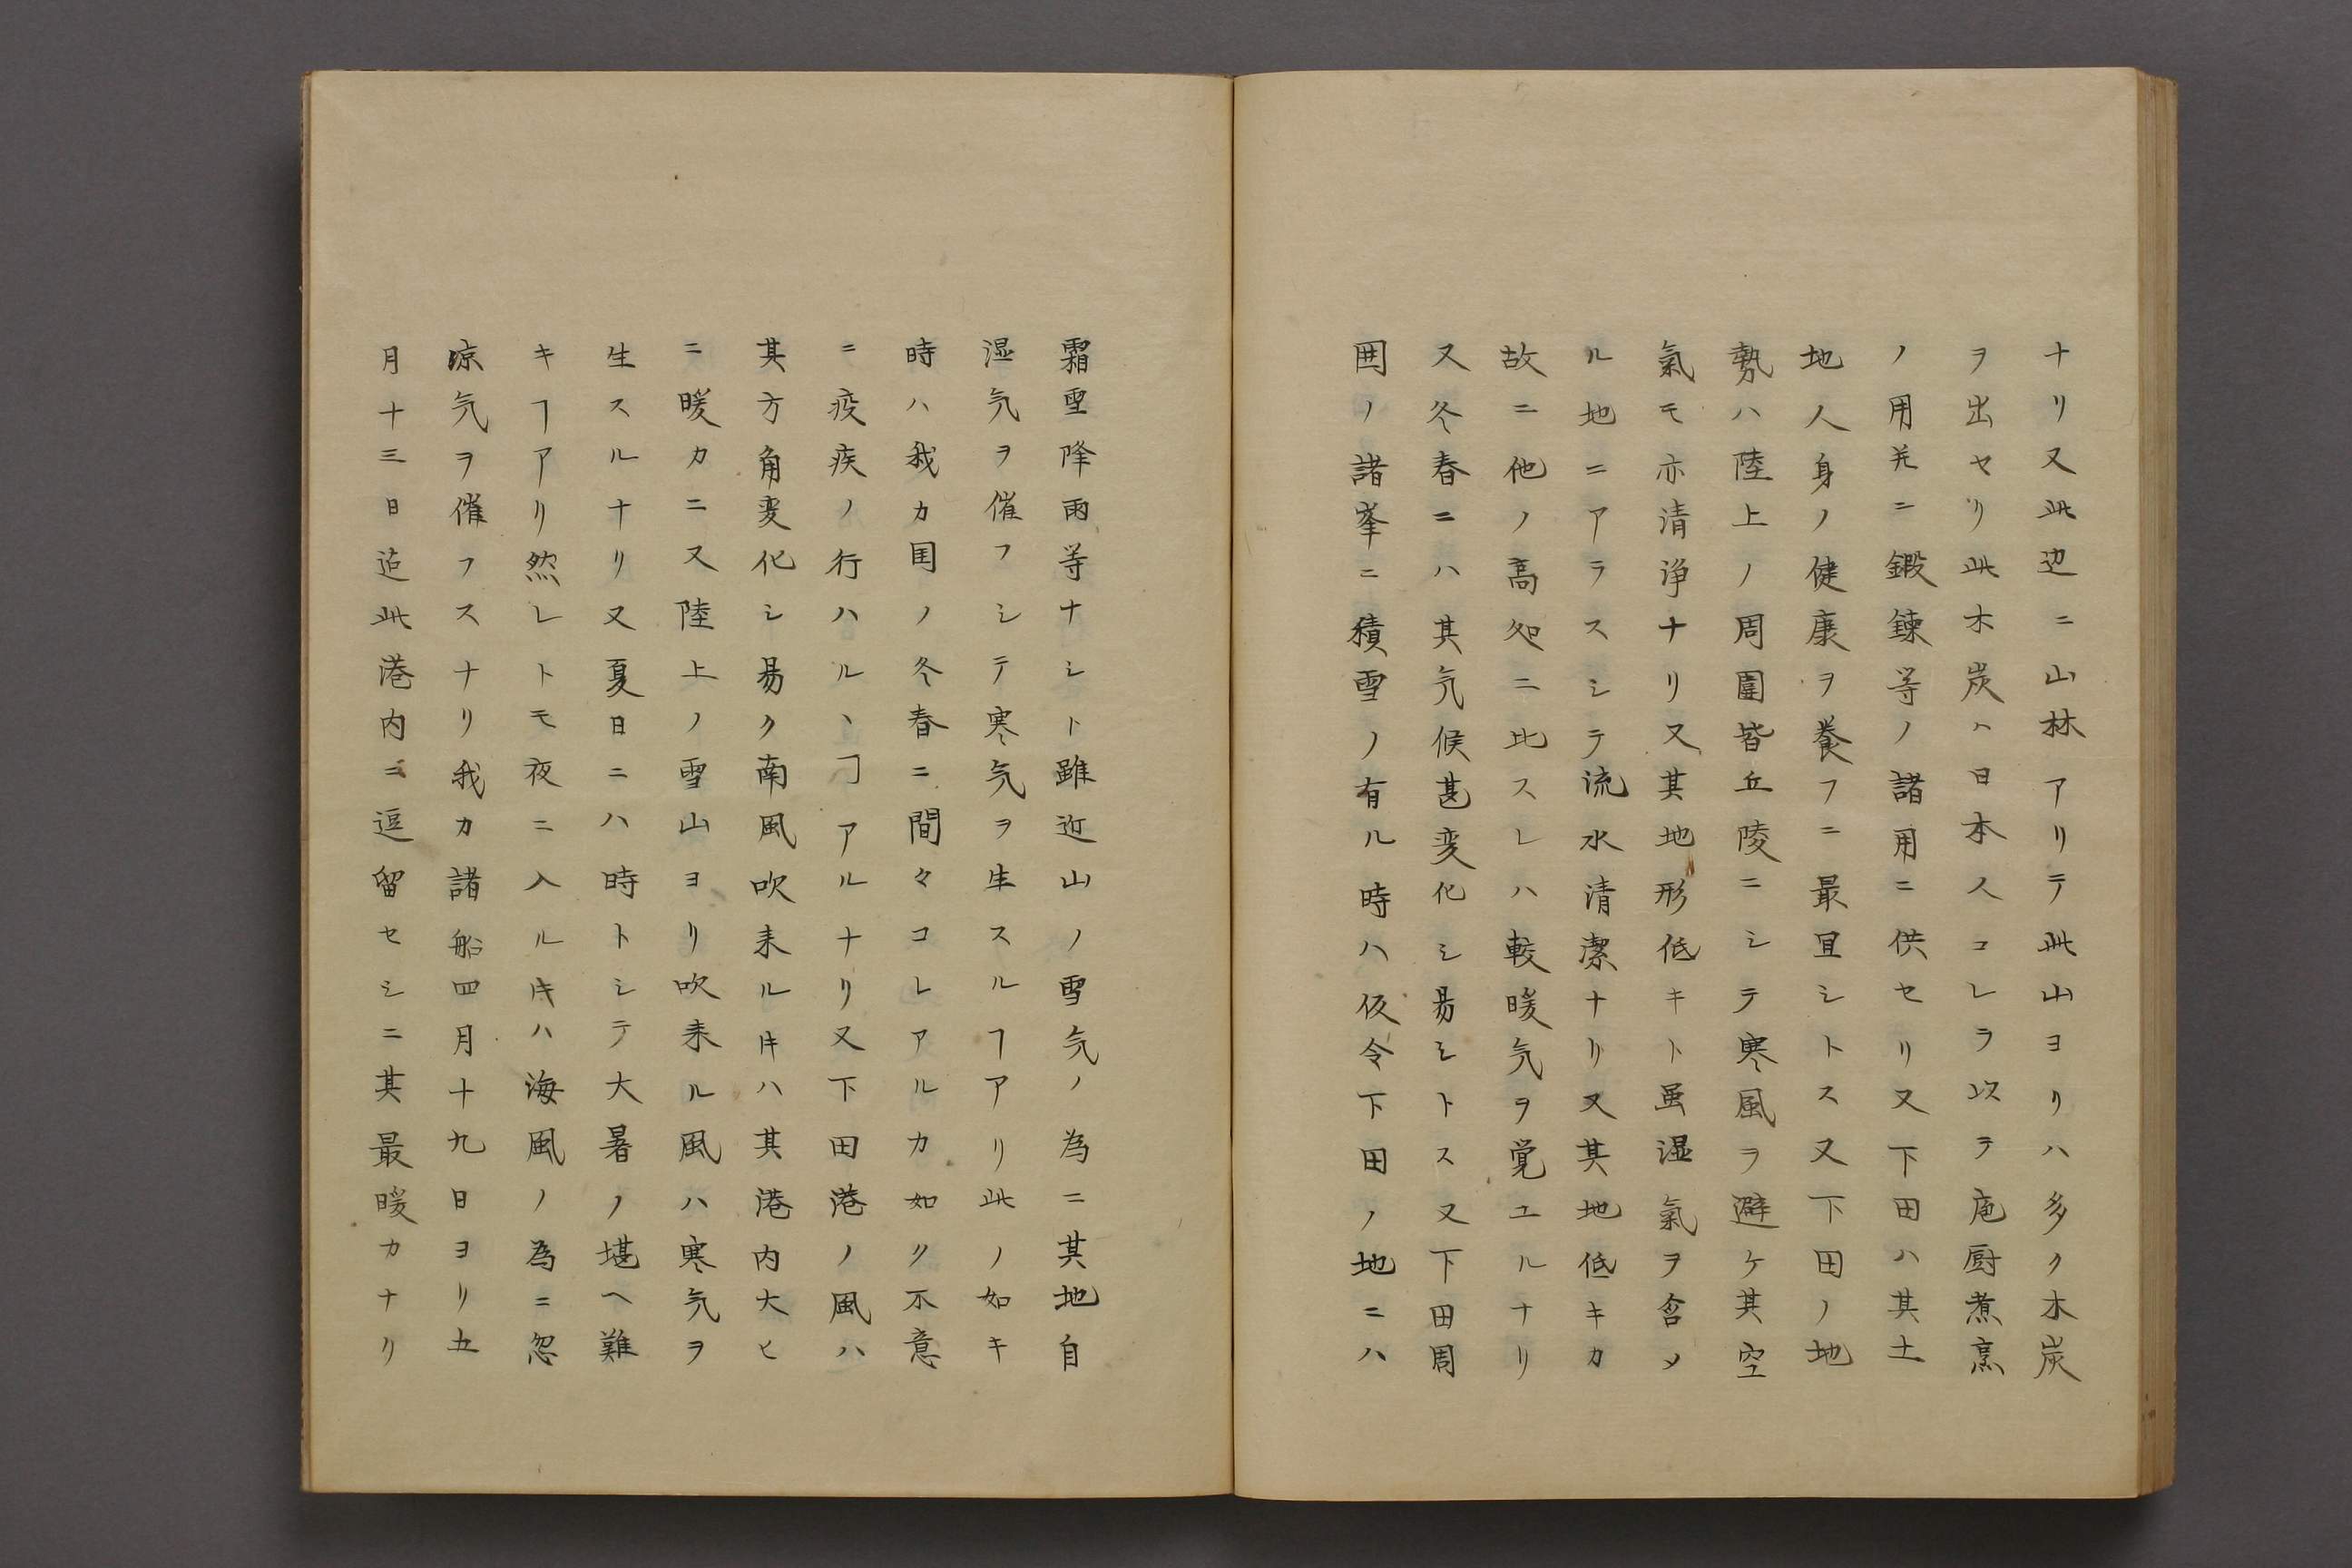 ナリ又此辺ニ山林アリテ此山ヨリハ多ク木炭
ヲ出セリ此木炭ハ日本人コレヲ以テ庖厨煮烹
ノ用并ニ鍛錬等ノ諸用ニ供セリ又下田ハ其土
地人身ノ健康ヲ養フニ最宜シトス又下田ノ地
勢ハ陸上ノ周圍皆丘陵ニシテ寒風ヲ避ケ其空
氣モ亦清浄ナリ又其地形低キト虽湿氣ヲ含メ
ル地ニアラスシテ流水清潔ナリ又其地低キカ
故ニ他ノ高処ニ比スレハ較暖气ヲ覚ユルナリ
又冬春ニハ其气候甚変化シ易シトス又下田周
囲ノ諸峯ニ積雪ノ有ル時ハ仮令下田ノ地ニハ
霜雪降雨等ナシト雖近山ノ雪气ノ為ニ其地自
湿气ヲ催フシテ寒气ヲ生スルヿアリ此ノ如キ
時ハ我カ国ノ冬春ニ間々コレアルカ如ク不意
ニ疫疾ノ行ハルヽヿアルナリ又下田港ノ風ハ
其方角変化シ易ク南風吹来ルキハ其港内大ヒ
ニ暖カニ又陸上ノ雪山ヨリ吹来ル風ハ寒气ヲ
生スルナリ又夏日ニハ時トシテ大暑ノ堪ヘ難
キヿアリ然レトモ夜ニ入ルキハ海風ノ為ニ忽
凉气ヲ催フスナリ我カ諸船四月十九日ヨリ五
月十三日迠此港内ニ逗留セシニ其最暖カナリ